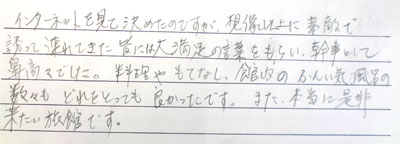 インターネットを見て決めたのですが、想像以上に素敵で
誘って連れてきた皆には大満足の言葉をもらい、幹事として
鼻高々でした。料理やもてなし、館内のふんい気、風呂の
数々もどれをとっても良かったです。また、本当に是非
来たい旅館です。